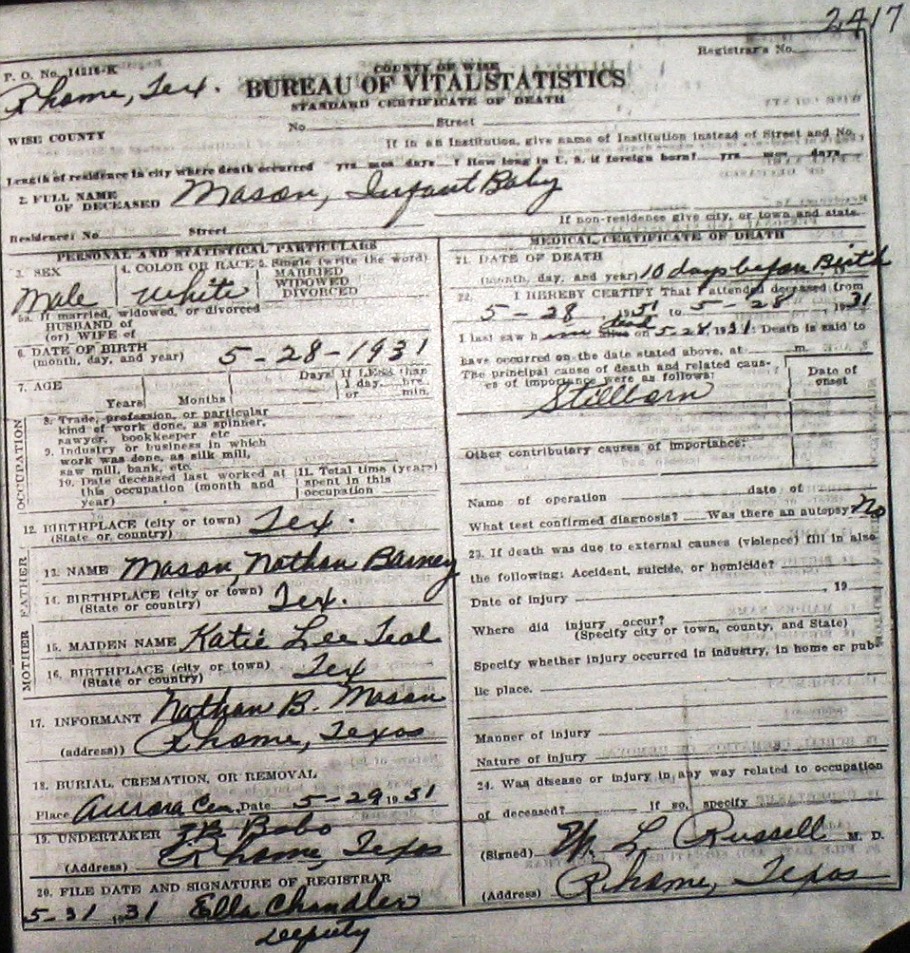 2417
Registrar's No.
P. O. No. 14216-K
COUNTY OF WISE
Rhome, Tex.
BUREAU OF VITAL STATISTICS
STANDARD CERTIFICATE OF DEATH
No. Street
WISE COUNTY
If in an Institution, give name of Institution instead of Street and No.
Length of residence in city where death occurred yrs mos days ? How long in U. S. if foreign born? yrs mos days
2. FULL NAME OF DECEASED Mason, Infant Baby
If non-residence give city, or town and state.
Residence: No Street
PERSONAL AND STATISTICAL PARTICULARS
3. SEX
4. COLOR OR RACE
5. Single (write the word)
MARRIED
WIDOWED
DIVORCED
Male White
5a. If married, widowed, or divorced
HUSBAND of
(or) WIFE of
6. DATE OF BIRTH
(month, day, and year) 5-28-1931
7. AGE
Years Months Days If LESS than
1 day, hrs.
or min.
OCCUPATION
8. Trade, profession, or particular
kind of work done, as spinner,
sawyer, bookkeeper etc
9. Industry or business in which
work was done, as silk mill,
saw mill, bank, etc.
10. Date deceased last worked at
this occupation (month and
year)
11. Total time (years)
spent in this
occupation
12. BIRTHPLACE (city or town) Tex.
(State or country)
FATHER
13. NAME Mason, Nathan Barney
14. BIRTHPLACE (city or town) Tex.
(State or country)
MOTHER
15. MAIDEN NAME Katie Lee Teal
16. BIRTHPLACE (city or town) Tex
(State or country)
17. INFORMANT Nathan B. Mason
(address)) Rhome, Texas
18. BURIAL, CREMATION, OR REMOVAL
Place Aurora Cem. Date 5-29 1931
19. UNDERTAKER Bobo
(Address) Rhome, Texas
20. FILE DATE AND SIGNATURE OF REGISTRAR
5-31 1931 Ella Chandler
Deputy
MEDICAL CERTIFICATE OF DEATH
21. DATE OF DEATH
(month, day, and year) 10 days before Birth
22. I HEREBY CERTIFY That I attended deceased from
5-28, 1931 to 5-28 1931
I last saw him dead alive on 5-28 1931: Death is said to
have occurred on the date stated above, at m.
The principal cause of death and related caus-
es of importance were as follows:
Date of
onset
Stillborn
Other contributory causes of importance:
Name of operation date of
What test confirmed diagnosis? Was there an autopsy? No
23. If death was due to external causes (violence) fill in also
the following: Accident, suicide, or homicide?
Date of injury , 19
Where did injury occur?
(Specify city or town, county, and State)
Specify whether injury occurred in industry, in home or pub-
lic place.
Manner of injury
Nature of injury
24. Was disease or injury in any way related to occupation
of deceased? If so, specify
(Signed) L. Russell M. D.
(Address) Rhome, Texas